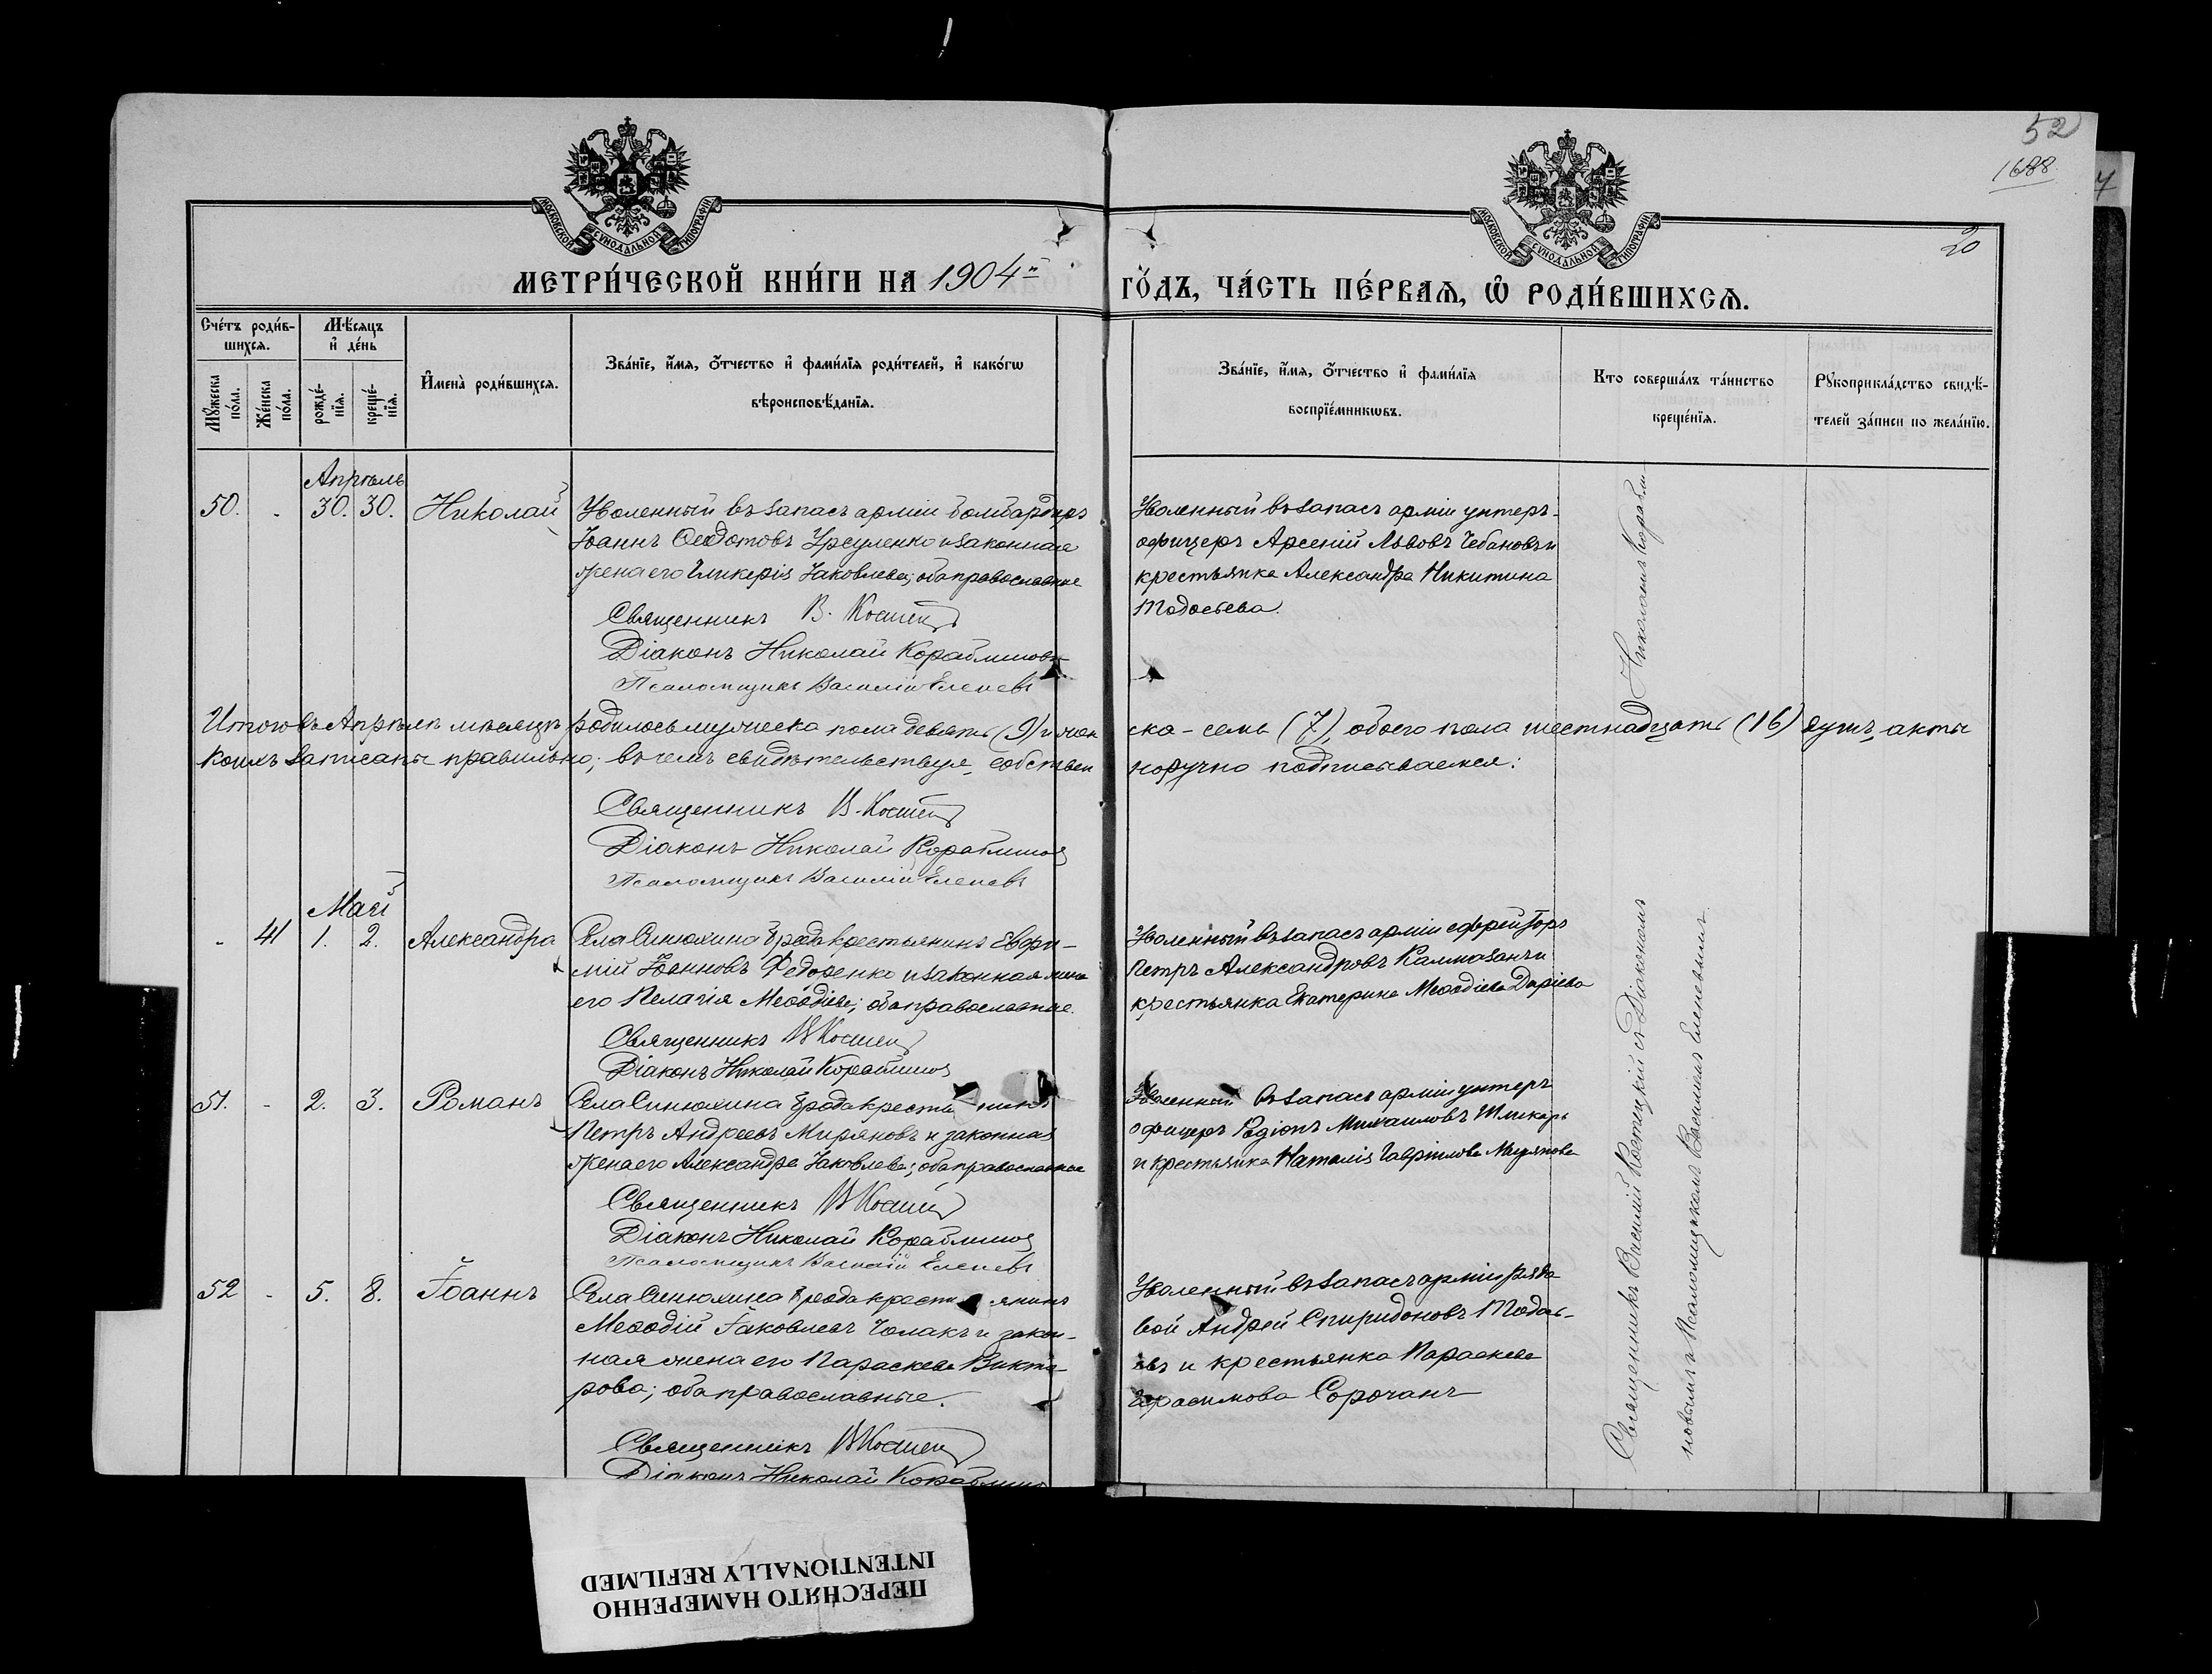 52
1688
7
20
МОСКОВСКОЙ СѴНОДАЛЬНОЙ ТИПОГРАФІИ
МОСКОВСКОЙ СѴНОДАЛЬНОЙ ТИПОГРАФІИ
МЕТРИ́ЧЕСКОЙ КНИ́ГИ НА 1904й
ГО́ДЪ, ЧА́СТЬ ПЕ́РВАѦ, Ѡ РОДИ́ВШИХСѦ.
Сче́тъ роди́в-
шихсѧ.
Мꙋ́жеска по́ла.
Же́нска по́ла.
Мѣ́сѧцъ
и҆ де́нь
рожде́-
нїѧ.
креще́-
нїѧ.
И҆мена̀ роди́вшихсѧ.
Зва́нїе, и҆́мѧ, ѻ҆́тчество и҆ фами́лїѧ роди́телей, и҆ како́гѡ
вѣроисповѣ́данїѧ.
Зва́нїе, и҆́мѧ, ѻ҆́тчество и҆ фами́лїѧ
воспрїе́мникѡвъ.
Кто соверша́лъ та́инство
креще́нїѧ.
Рꙋкоприкла́дство свидѣ́-
телей за́писи по жела́нїю.
Апрѣль
50. - 30. 30. Николай
Уволенный въ запасъ арміи бомбардиръ
Іоаннъ Ѳеодотовъ Урсуленко и законная
жена его Гликерія Іаковлева; оба православные
Священникъ В. Костец
Діаконъ Николай Кораблиновъ
Псаломщикъ Василій Еленевъ
Уволенный въ запасъ арміи унтеръ-
офицеръ Арсеній Львовъ Чебановъ и
крестьянка Александра Никитина
Тодосьева.
Итого въ Апрѣлѣ мѣсяцѣ родилось мужеска пола девять (9) и жен
ска - семь (7), обоего пола шестнадцать (16) душъ, акты
коихъ записаны правильно; въ чемъ свидѣтельствуя, собствен
норучно подписываемся:
Священникъ В. Костец
Діаконъ Николай Кораблинов
Псаломщикъ Василій Еленевъ
Май
- 41 1. 2. Александра
Села Синюхина Брода крестьянинъ Евфи-
мій Іоанновъ Федоренко и законная жена
его Пелагія Меѳодіева; оба православные.
Священникъ В Костец
Діаконъ Николай Кораблинов
Уволенный въ запасъ арміи ефрейторъ
Петръ Александровъ Калмазанъ и
крестьянка Екатерина Меѳодіева Даріева
51. - 2. 3. Романъ
Села Синюхина Брода крестьянинъ
Петръ Андреевъ Миряновъ и законная
жена его Александра Іаковлева; оба православные
Священникъ В Костец
Діаконъ Николай Кораблинов
Псаломщикъ Василій Еленевъ
Уволенный въ запасъ арміи унтеръ
офицеръ Родіонъ Михаиловъ Шликарь
и крестьянка Наталія Гавріилова Мирянова
52 - 5. 8. Іоаннъ
Села Синюхина Брода крестьянинъ
Меѳодій Іаковлевъ Чолакъ и закон-
ная жена его Параскева Викто-
рова; оба православные.
Священникъ В Костец
Діаконъ Николай Кораблин
Уволенный въ запасъ арміи рядо
вой Андрей Спиридоновъ Тодос-
евъ и крестьянка Параскева
Герасимова Сорочанъ
Священникъ Василій Костецкій съ Діакономъ Николаемъ Корабли-
новымъ и Псаломщикомъ Василіемъ Еленевымъ.
ПЕРЕСНЯТО НАМЕРЕННО
INTENTIONALLY REFILMED